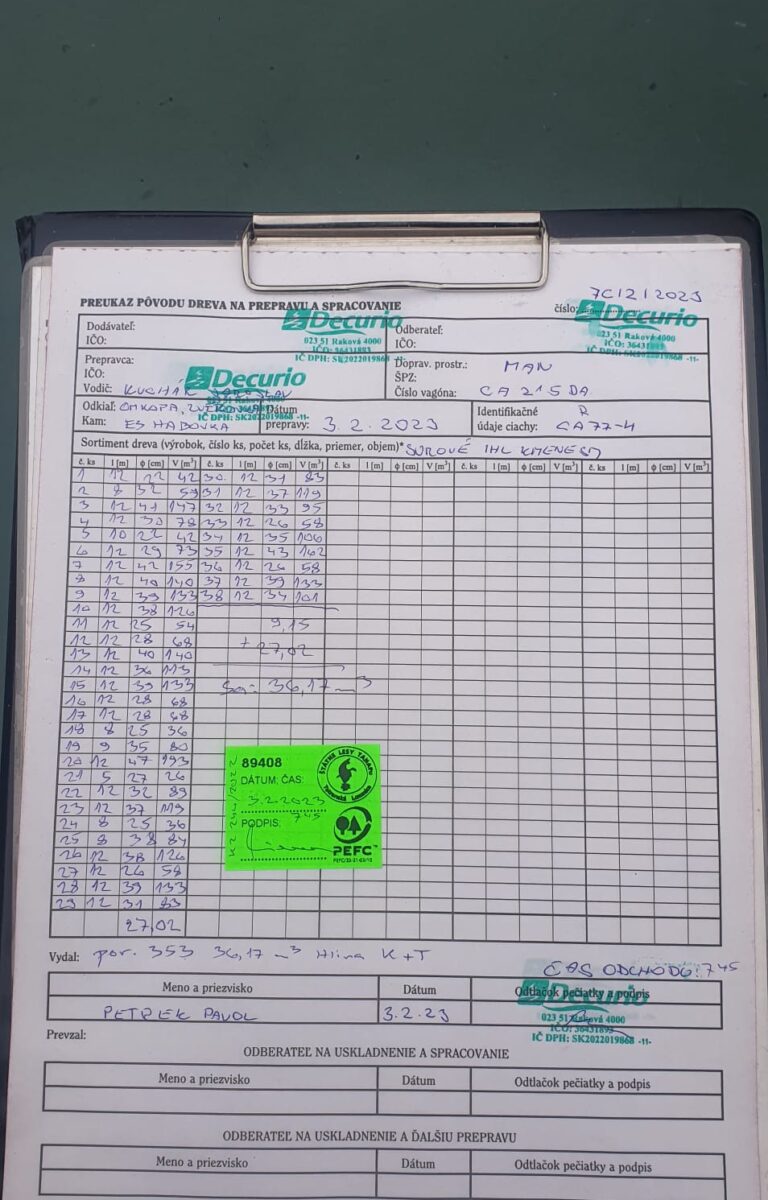 7C/2/2023
PREUKAZ PÔVODU DREVA NA PREPRAVU A SPRACOVANIE číslo:
Decurio
023 51 Raková 4000
IČO: 36431893
IČ DPH: SK2022019868 -11-
Decurio
023 51 Raková 4000
IČ DPH: SK2022019868 -11-
Dodávateľ: Odberateľ:
IČO: IČO:
Prepravca: Doprav. prostr.: MAN
IČO: ŠPZ:
Vodič: KUCHÁR Číslo vagóna: CA 215 DA
Decurio
IČ DPH: SK2022019868 -11-
Odkiaľ: Dátum Identifikačné R
Kam: ES HADOVKA prepravy: 3. 2. 2023 údaje ciachy: CA 77-4
Sortiment dreva (výrobok, číslo ks, počet ks, dĺžka, priemer, objem)* SUROVÉ IHL KMENE
č. ks l [m] ϕ [cm] V [m³] č. ks l [m] ϕ [cm] V [m³] č. ks l [m] ϕ [cm] V [m³] č. ks l [m] ϕ [cm] V [m³] č. ks l [m] ϕ [cm] V [m³]
1 12 22 42 30 12 31 83
2 8 32 59 31 12 37 119
3 12 41 147 32 12 33 95
4 12 30 78 33 12 26 58
5 10 22 42 34 12 35 106
6 12 29 73 35 12 43 162
7 12 42 155 36 12 26 58
8 12 40 140 37 12 39 133
9 12 39 133 38 12 34 101
10 12 38 126
11 12 25 54 9,15
12 12 28 68 + 27,02
13 12 40 140
14 12 36 113
15 12 39 133 36,17 m³
16 12 28 68
17 12 28 68
18 8 25 36
19 9 35 80
20 12 47 193
21 5 27 26
22 12 32 89
23 12 37 119
24 8 25 36
25 8 38 84
26 12 38 126
27 12 26 58
28 12 39 133
29 12 31 83
27,02
89408
DÁTUM; ČAS:
3.2.2023
7 45
PODPIS:
ŠTÁTNE LESY TANAPu
Tatranská Lomnica
PEFC™
Vydal: por. 353 36,17 m³ Hlina K+T
ČAS ODCHODU: 7 45
Meno a priezvisko Dátum Odtlačok pečiatky a podpis
PETREK PAVOL 3.2.23
Decurio
023 51 Raková 4000
IČO: 36431893
IČ DPH: SK2022019868 -11-
Prevzal:
ODBERATEĽ NA USKLADNENIE A SPRACOVANIE
Meno a priezvisko Dátum Odtlačok pečiatky a podpis
ODBERATEĽ NA USKLADNENIE A ĎALŠIU PREPRAVU
Meno a priezvisko Dátum Odtlačok pečiatky a podpis